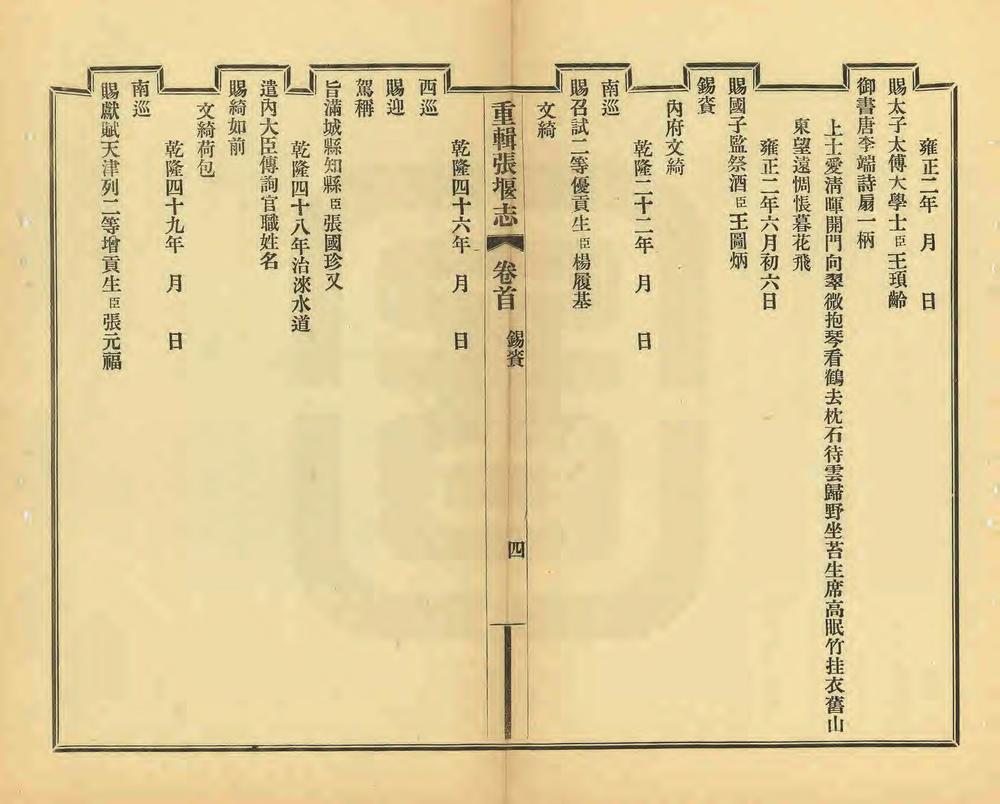 雍正二年　月　日
賜太子太傅大學士臣王頊齡
御書唐李端詩扇一柄
上士愛清暉開門向翠微抱琴看鶴去枕石待雲歸野坐苔生席高眠竹挂衣舊山
東望遠惆悵暮花飛
雍正二年六月初六日
賜國子監祭酒臣王圖炳
錫賚
內府文綺
乾隆二十二年　月　日
南巡
賜召試二等優貢生臣楊履基
文綺
重輯張堰志　卷首　錫賚　四
乾隆四十六年　月　日
西巡
賜迎
駕稱
旨滿城縣知縣臣張國珍又
乾隆四十八年治淶水道
遣內大臣傳詢官職姓名
賜綺如前
文綺荷包
乾隆四十九年　月　日
南巡
賜獻賦天津列二等增貢生臣張元福